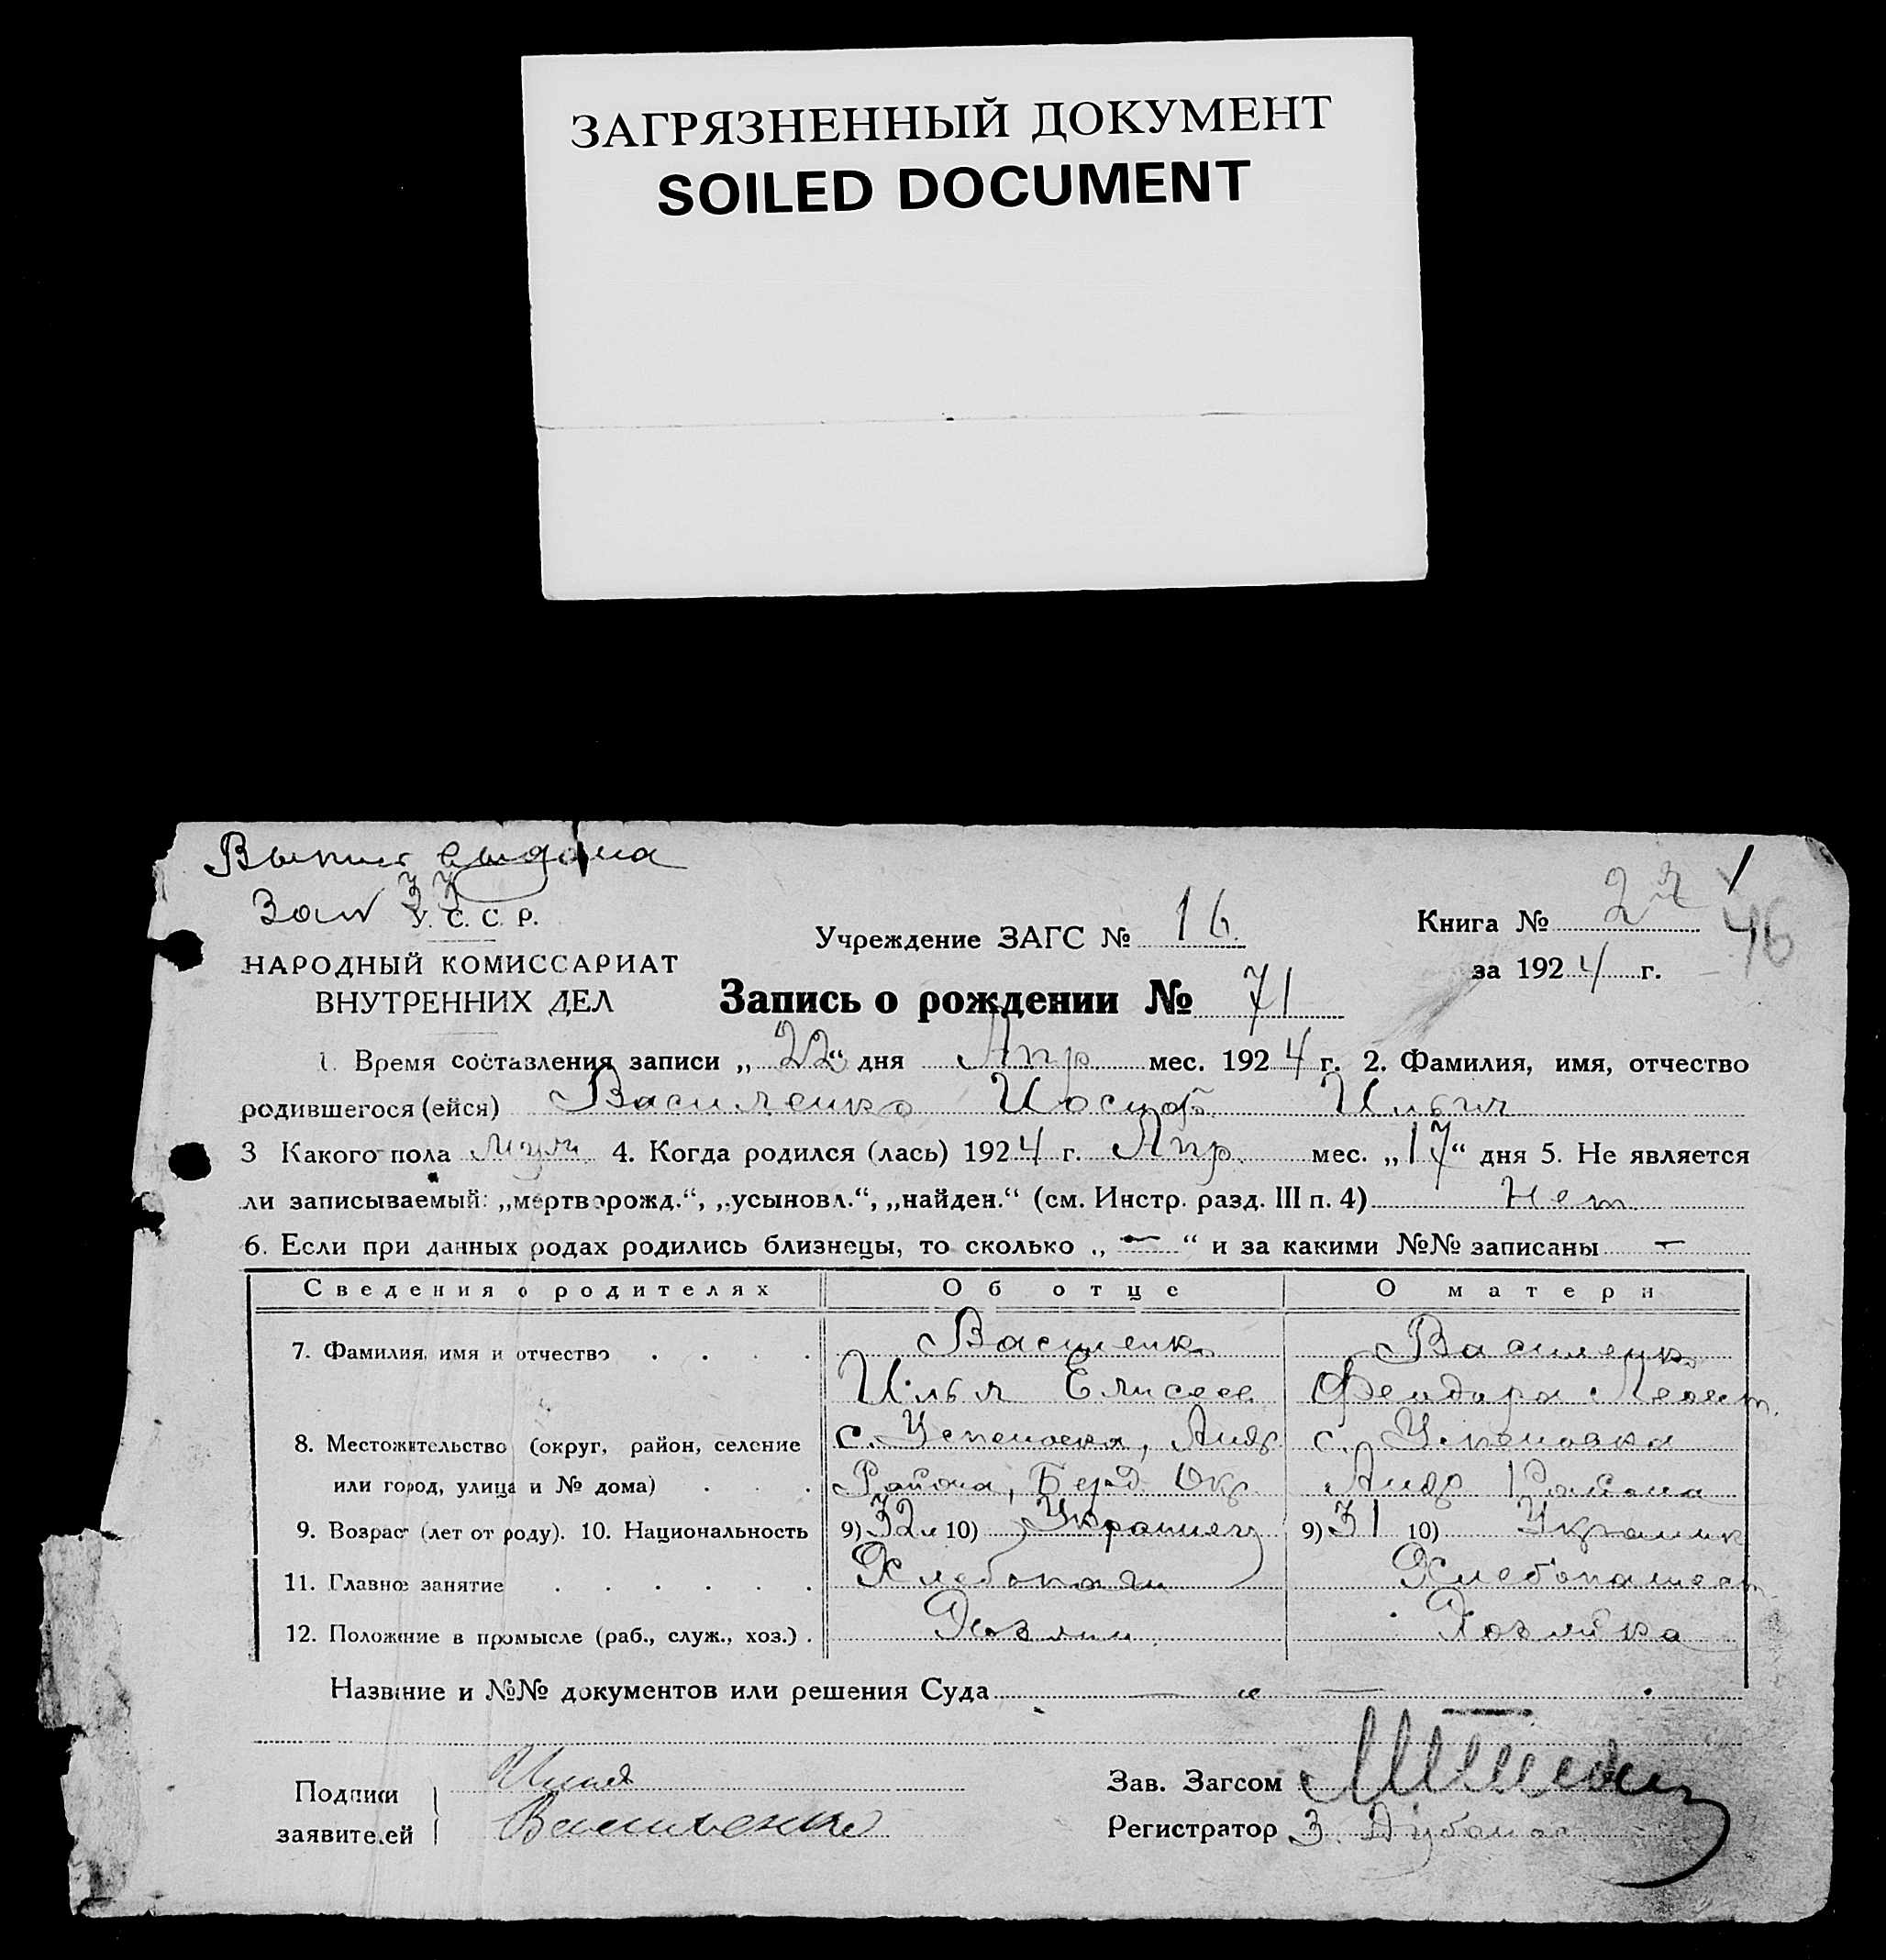 ЗАГРЯЗНЕННЫЙ ДОКУМЕНТ
SOILED DOCUMENT
выдана
У. С. С. Р.
Учреждение ЗАГС № 16.
Книга № 22
46
НАРОДНЫЙ КОМИССАРИАТ
за 1924 г.
ВНУТРЕННИХ ДЕЛ
Запись о рождении № 71
1. Время составления записи „22“ дня Апр. мес. 1924 г. 2. Фамилия, имя, отчество
родившегося (ейся) Василенко Иосиф Ильич
3 Какого пола муж. 4. Когда родился (лась) 1924 г. Апр. мес. „17“ дня 5. Не является
ли записываемый: „мертворожд.“, „усыновл.“, „найден.“ (см. Инстр. разд. III п. 4) Нет
6. Если при данных родах родились близнецы, то сколько „ — “ и за какими №№ записаны —
Сведения о родителях Об отце О матери
7. Фамилия, имя и отчество Василенко Василенко
Илья Елисеев. Феодора Леонт.
8. Местожительство (округ, район, селение с. Успеновка, Андр. с. Успеновка
или город, улица и № дома) Района, Берд. Окр. Андр. Района
9. Возраст (лет от роду). 10. Национальность 9) 32 л 10) Украинец 9) 31 10) Украинк
11. Главное занятие Хлебопаш Хлебопашест.
12. Положение в промысле (раб., служ., хоз.) Хозяин Хозяйка
Название и №№ документов или решения Суда — „ —
Подписи
заявителей
Илья
Василенко
Зав. Загсом
Регистратор З.